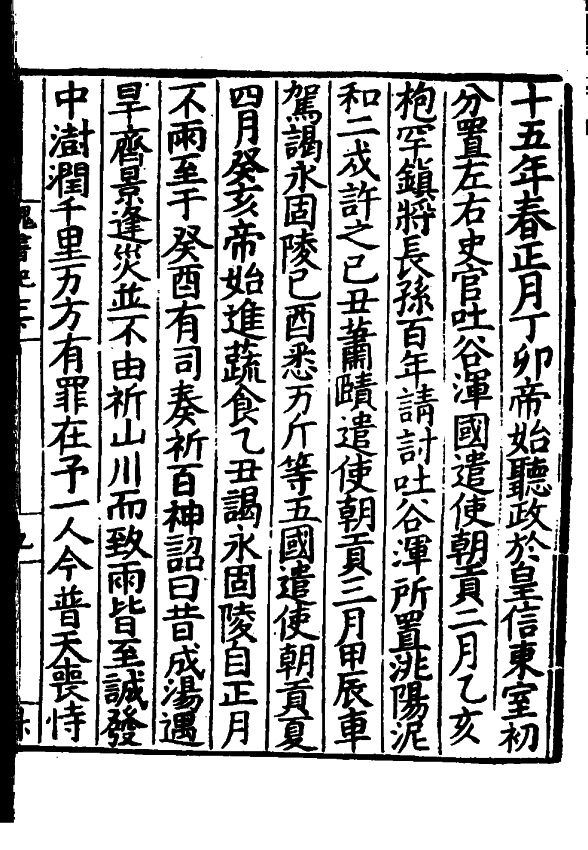 十五年春正月丁卯帝始聽政於皇信東室初
分置左右史官吐谷渾國遣使朝貢二月乙亥
枹罕鎮將長孫百年請討吐谷渾所置洮陽泥
和二戍許之己丑蕭賾遣使朝貢三月甲辰車
駕謁永固陵己酉悉万斤等五國遣使朝貢夏
四月癸亥帝始進蔬食乙丑謁永固陵自正月
不雨至于癸酉有司奏祈百神詔曰昔成湯遇
旱齊景逢災並不由祈山川而致雨皆至誠發
中澍潤千里万方有罪在予一人今普天喪恃